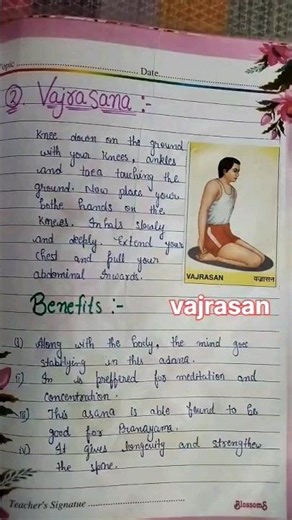 Topic
Date
② Vajrasana :-
Knee down on the ground
with your knees, ankles
and toea touching the
ground. Now place your
bothe hands on the
Knees. Inhals slowly
and deeply. Extend your
chest and pull your
abdominal Inwards.
VAJRASAN वज्रासन
Benefits :-
vajrasan
(i) Along with the body, the mind goes
stabilying in this asana.
ii) In is preffered for meditation and
concentration.
iii) This asana is able found to be
good for Pranayama.
iv) It gives longevity and strengthen
the spine.
Teacher's Signatue
Blossoms